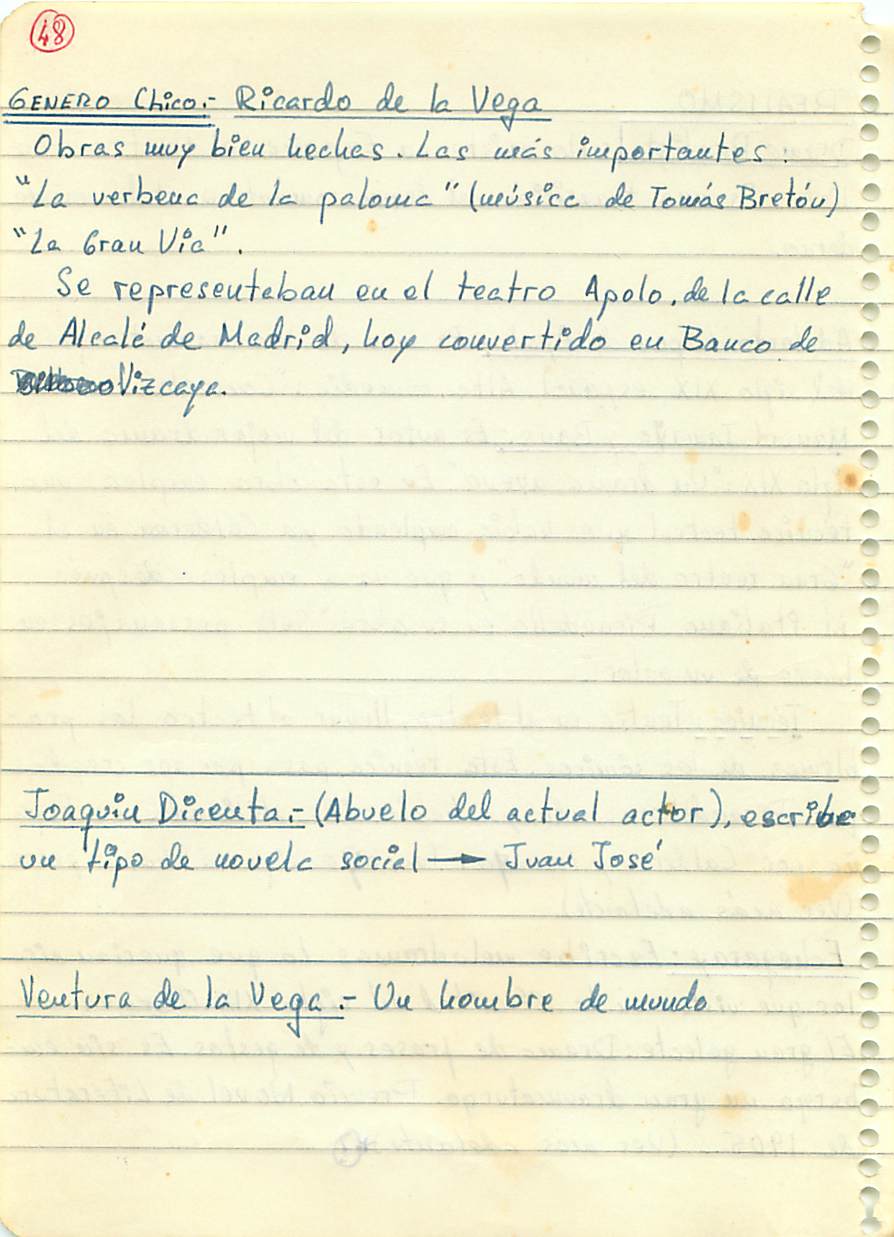 48
GENERO Chico.- Ricardo de la Vega
Obras muy bien hechas. Las más importantes:
"La verbena de la paloma" (música de Tomás Bretón)
"La Gran Vía".
Se representaban en el teatro Apolo, de la calle
de Alcalá de Madrid, hoy convertido en Banco de
Vizcaya.
Joaquin Dicenta.- (Abuelo del actual actor), escribe
un tipo de novela social → Juan José
Ventura de la Vega.- Un hombre de mundo